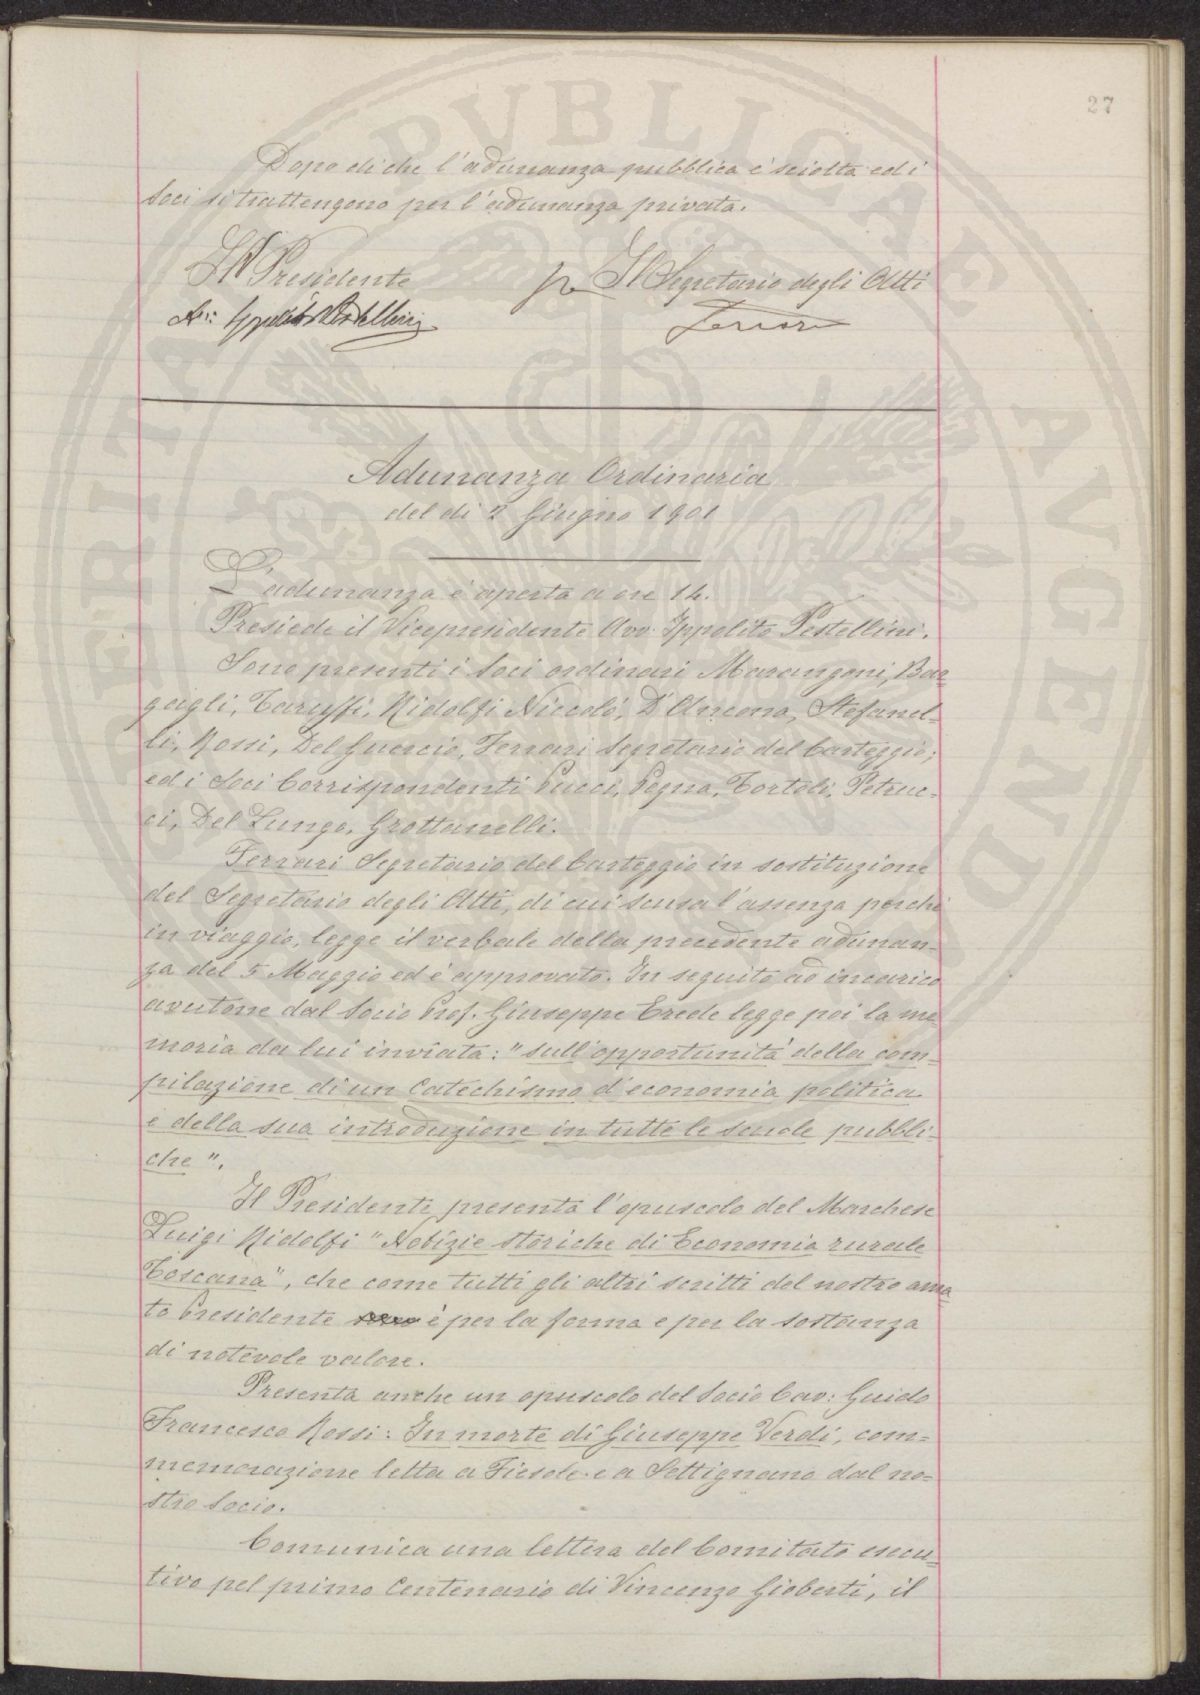 27
Dopo di che l'adunanza pubblica è sciolta ed i
Soci si trattengono per l'adunanza privata.
Il V Presidente
p Il Segretario degli Atti
Avv: Ippolito Pestellini
Ferrari
Adunanza Ordinaria
del dì 2 Giugno 1901
L'adunanza è aperta a ore 14.
Presiede il Vicepresidente Avv: Ippolito Pestellini.
Sono presenti i Soci ordinari Marangoni, Bar=
gagli, Taruffi, Ridolfi Niccolò, D'Ancona, Stefanel=
li, Rossi, Del Guercio, Ferrari Segretario del Carteggio;
ed i Soci Corrispondenti Pucci, Pegna, Tortoli, Petruc=
ci, Del Lungo, Grottanelli.
Ferrari Segretario del Carteggio in sostituzione
del Segretario degli Atti, di cui scusa l'assenza perchè
in viaggio, legge il verbale della precedente adunan=
za del 5 Maggio ed è approvato. In seguito ad incarico
avutone dal Socio Prof. Giuseppe Erede legge poi la me
moria da lui inviata: "sull'opportunità della com=
pilazione di un Catechismo d'economia politica
e della sua introduzione in tutte le scuole pubbli=
che".
Il Presidente presenta l'opuscolo del Marchese
Luigi Ridolfi "Notizie storiche di Economia rurale
Toscana", che come tutti gli altri scritti del nostro ama
to Presidente è per la forma e per la sostanza
di notevole valore.
Presenta anche un opuscolo del Socio Cav: Guido
Francesco Rossi: In morte di Giuseppe Verdi, com=
memorazione letta a Fiesole e a Settignano dal no=
stro Socio.
Comunica una lettera del Comitato esecu=
tivo pel primo Centenario di Vincenzo Gioberti, il
PROSPERITATI PVBLICAE AVGENDAE